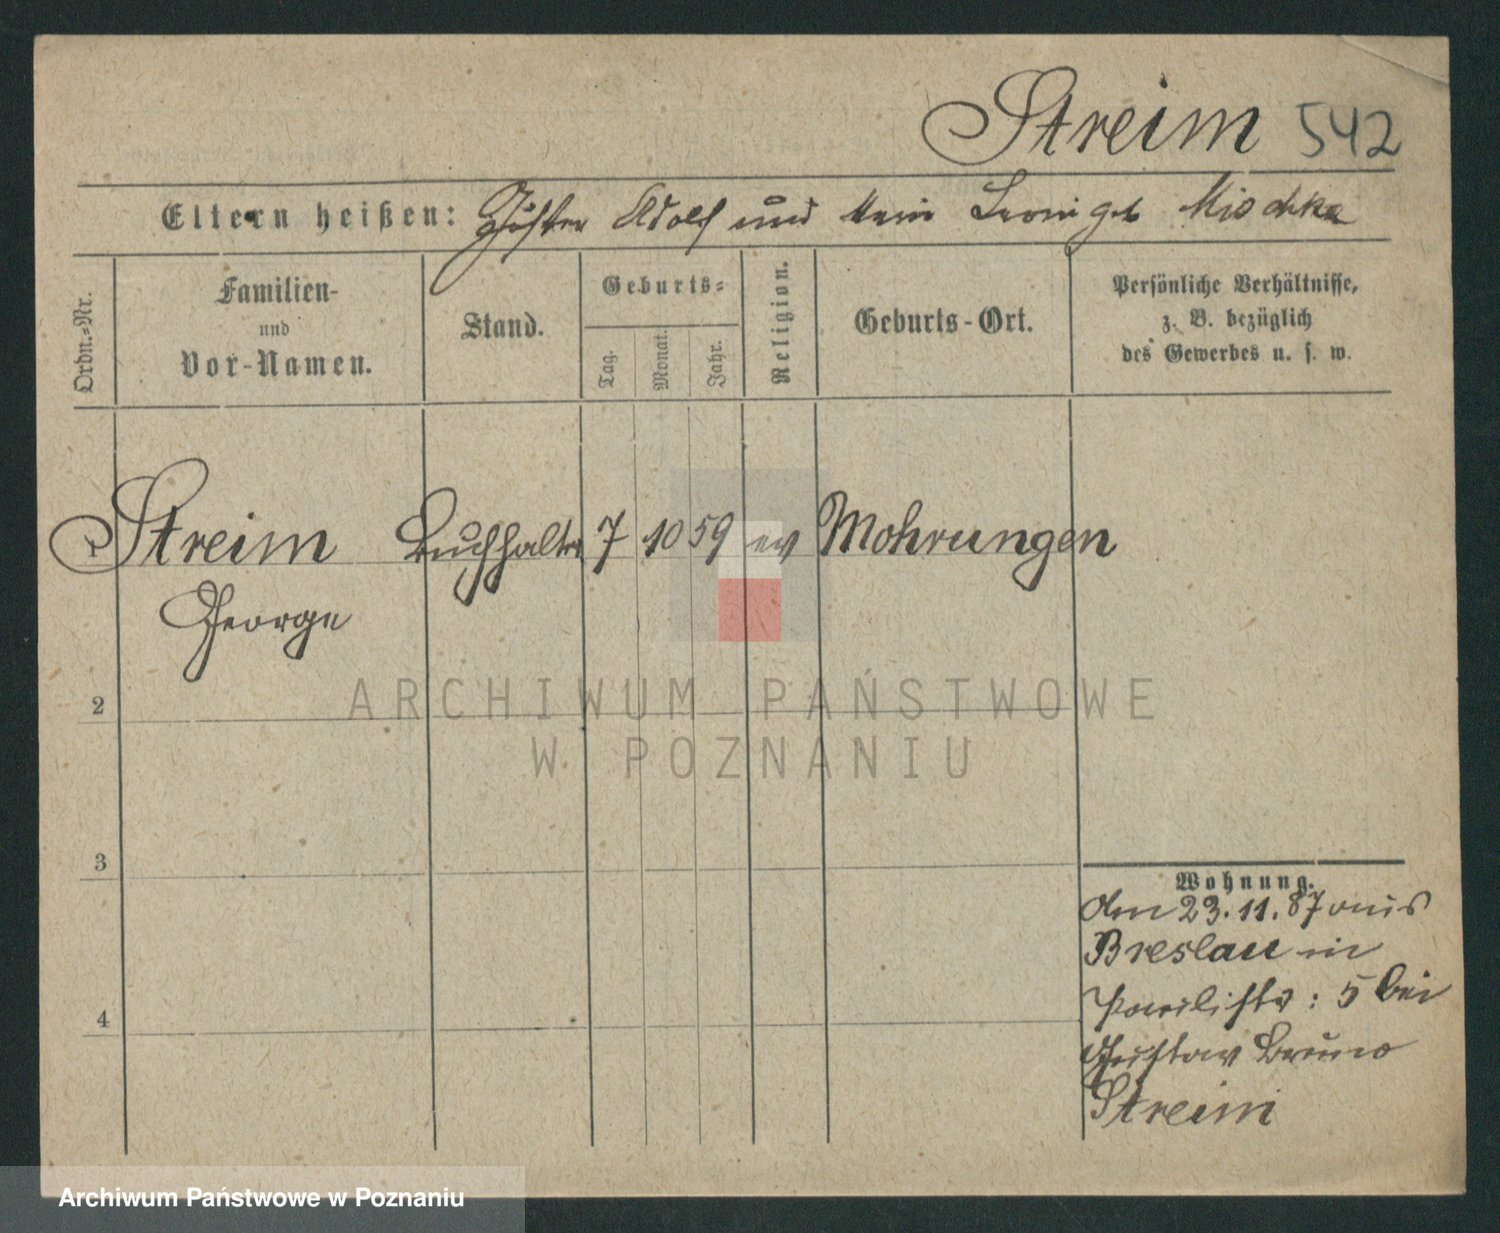 Streim 542
Eltern heißen: Adolf und Mischke
Ordn.-Nr.
Familien-
und
Vor-Namen.
Stand.
Geburts-
Tag.
Monat.
Jahr.
Religion.
Geburts-Ort.
Persönliche Verhältnisse,
z. B. bezüglich
des Gewerbes u. s. w.
Streim Buchhalter 7 10 59 ev Mohrungen
George
2
3
4
Wohnung.
den 23.11.87 aus
Breslau in
5 bei
Gustav Bruno
Streim
ARCHIWUM PAŃSTWOWE
W POZNANIU
Archiwum Państwowe w Poznaniu